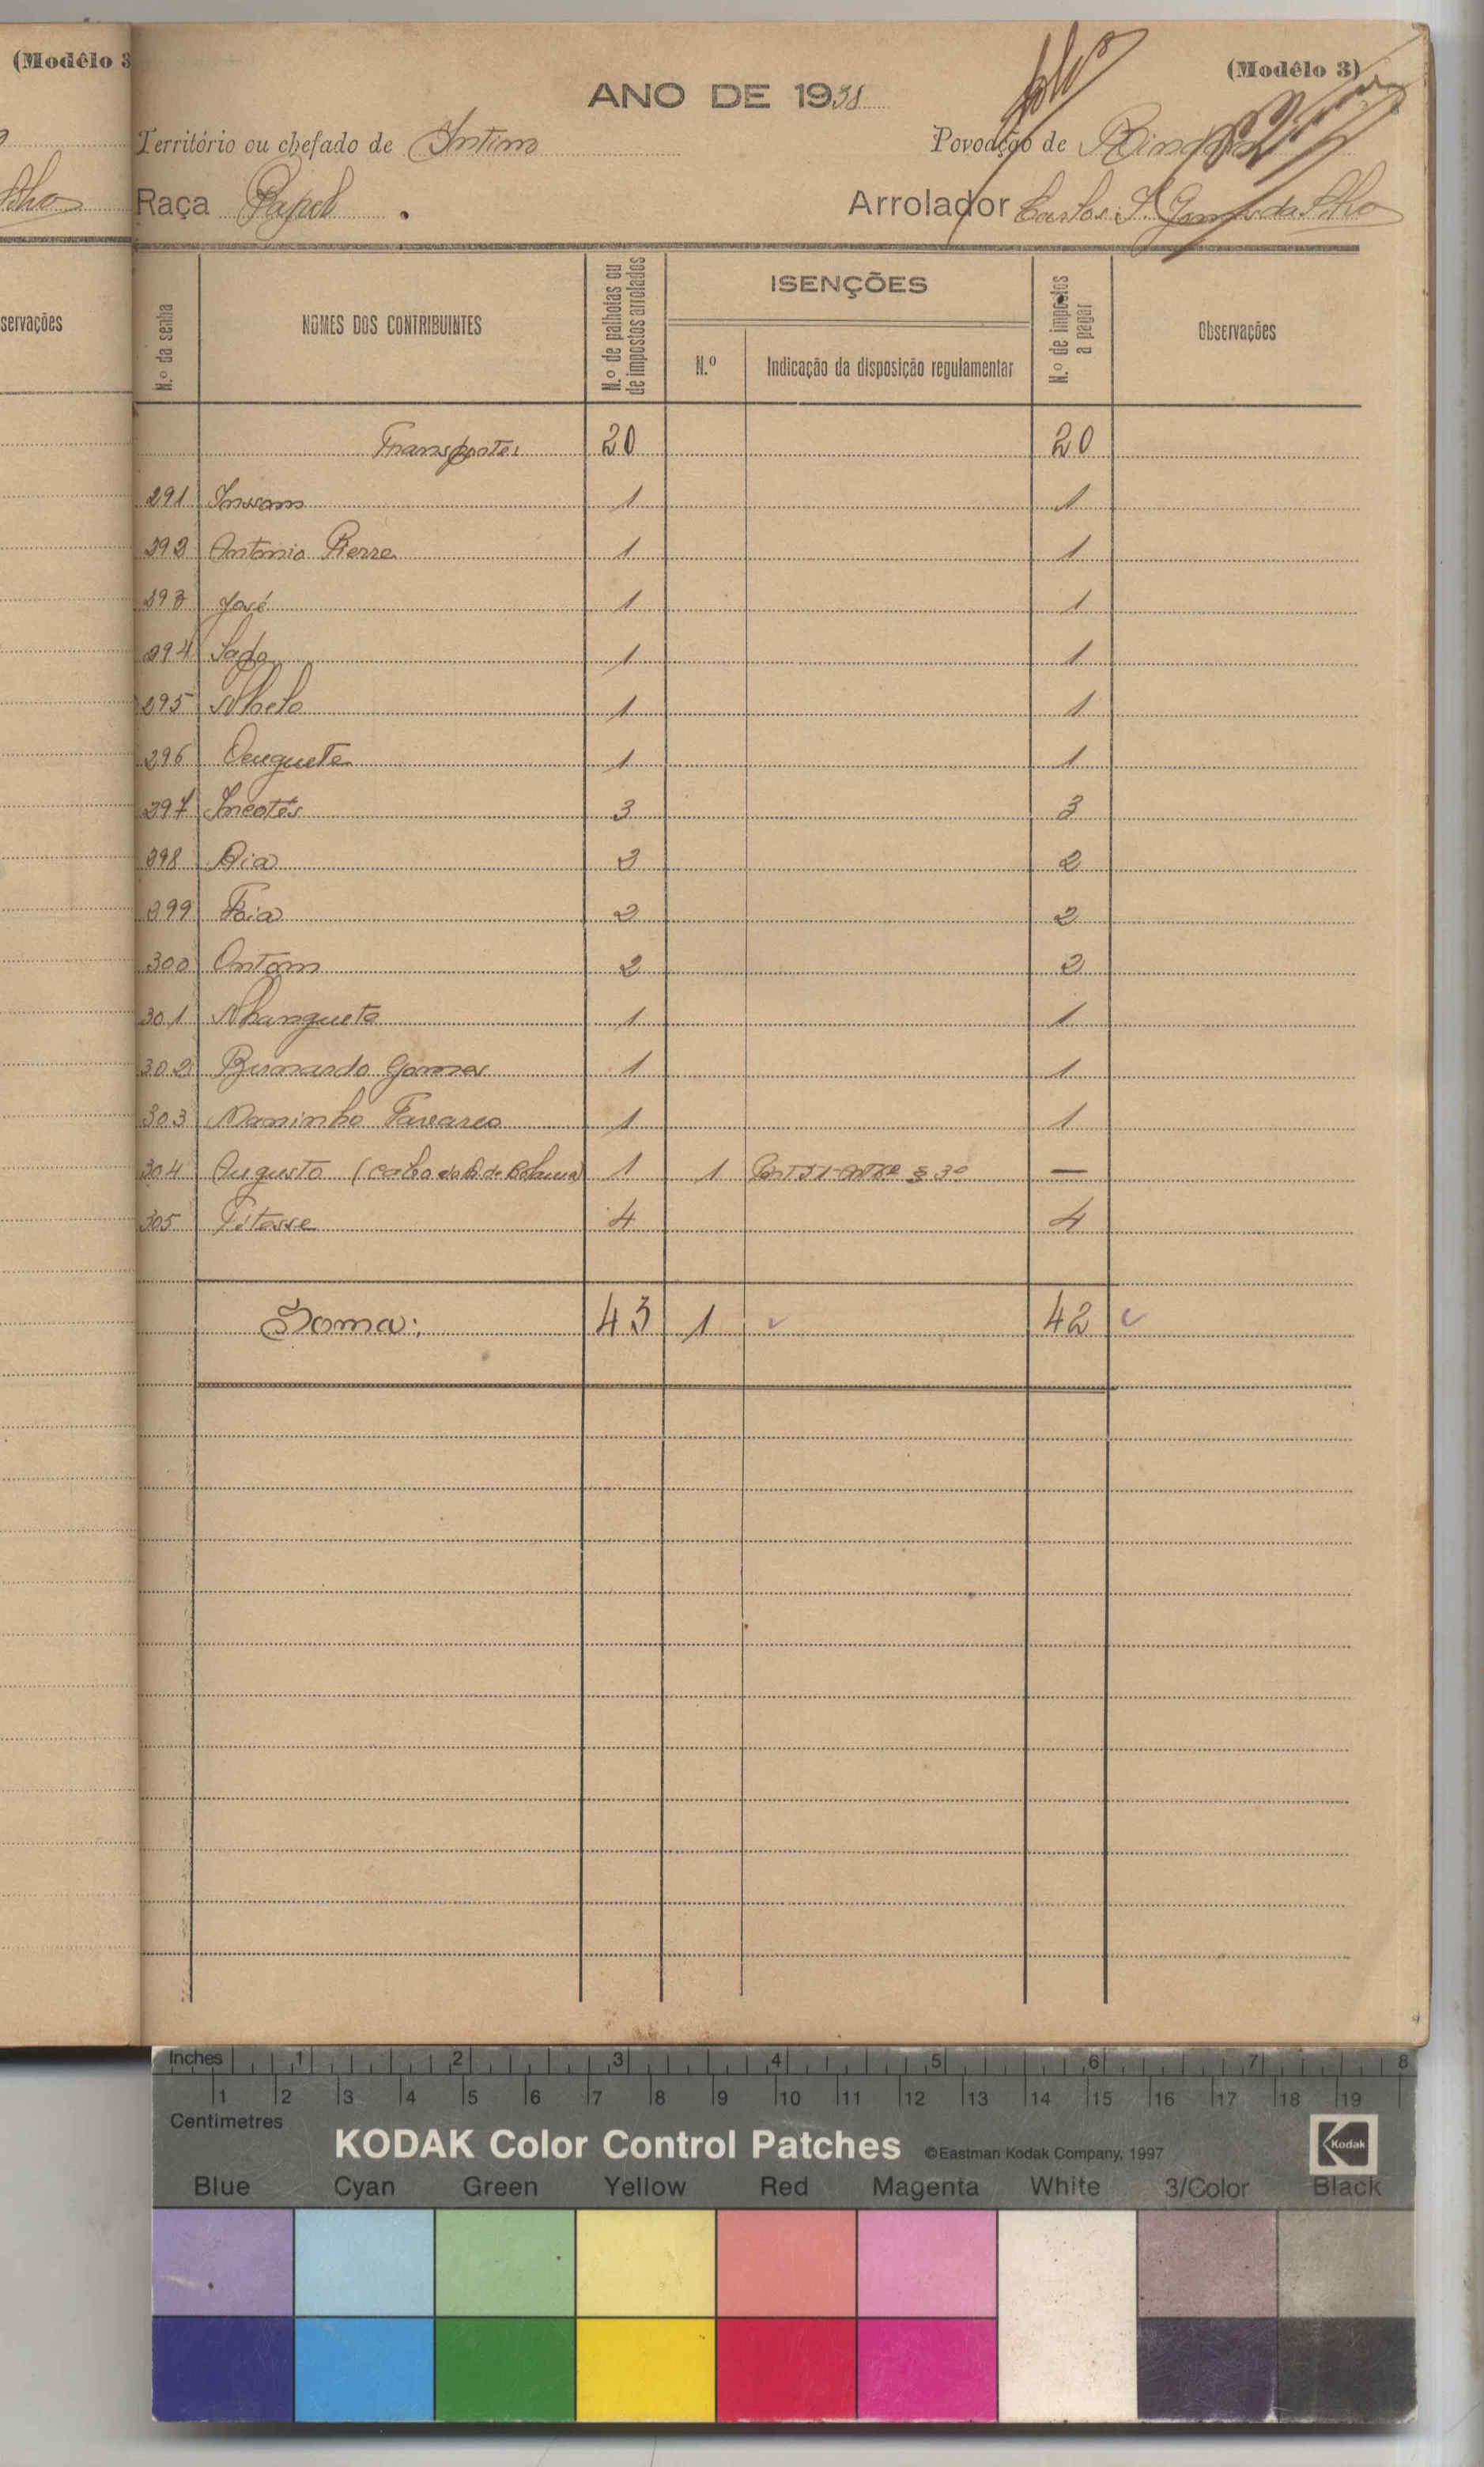 (Modêlo 3
servações
(Modêlo 3)
ANO DE 1938
Território ou chefado de Intim
Povoação de
Raça Papel .
Arrolador Carlos
N.º da senha
NOMES DOS CONTRIBUINTES
N.º de palhotas ou de impostos arrolados
ISENÇÕES
N.º
Indicação da disposição regulamentar
N.º de impostos a pagar
Observações
Transportes 20 20
291 1 1
292 Antonio Pierre 1 1
293 José 1 1
294 Sago 1 1
295 Nhelo 1 1
296 1 1
297 3 3
298 Bia 2 2
299 2 2
300 Ontom 2 2
301 Nhangueta 1 1
302 Bernardo Gomes 1 1
303 Maninho Tavares 1 1
304 Augusto (cabo 1 1 § 3º —
305 Pitosse 4 4
Soma: 43 1 42
Inches 1 2 3 4 5 6 7 8
1 2 3 4 5 6 7 8 9 10 11 12 13 14 15 16 17 18 19
Centimetres
KODAK Color Control Patches ©Eastman Kodak Company, 1997 Kodak
Blue Cyan Green Yellow Red Magenta White 3/Color Black